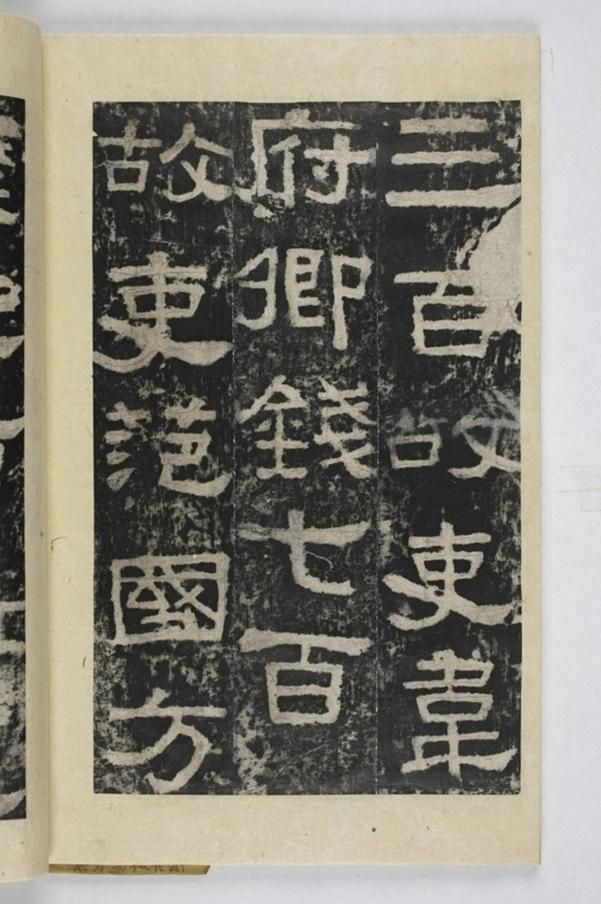 三百故吏韋
府卿錢七百
故吏范國方